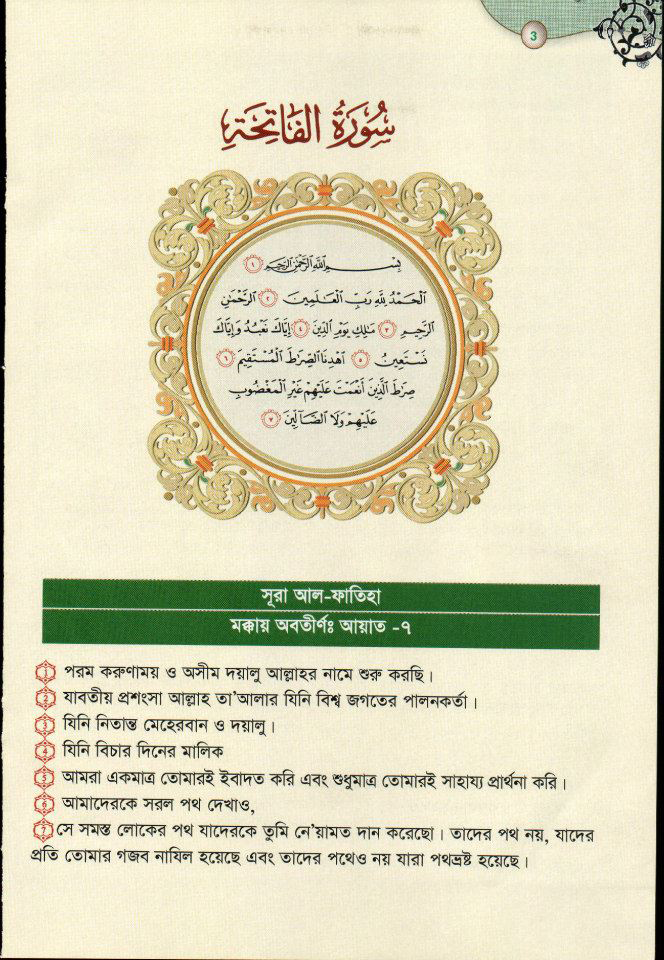 3
سُورَةُ الفَاتِحَةِ
بِسْمِ اللَّهِ الرَّحْمَٰنِ الرَّحِيمِ ١
الْحَمْدُ لِلَّهِ رَبِّ الْعَالَمِينَ ٢ الرَّحْمَٰنِ
الرَّحِيمِ ٣ مَالِكِ يَوْمِ الدِّينِ ٤ إِيَّاكَ نَعْبُدُ وَإِيَّاكَ
نَسْتَعِينُ ٥ اهْدِنَا الصِّرَاطَ الْمُسْتَقِيمَ ٦
صِرَاطَ الَّذِينَ أَنْعَمْتَ عَلَيْهِمْ غَيْرِ الْمَغْضُوبِ
عَلَيْهِمْ وَلَا الضَّالِّينَ ٧
সূরা আল-ফাতিহা
মক্কায় অবতীর্ণঃ আয়াত -৭
1 পরম করুণাময় ও অসীম দয়ালু আল্লাহর নামে শুরু করছি।
2 যাবতীয় প্রশংসা আল্লাহ তা'আলার যিনি বিশ্ব জগতের পালনকর্তা।
3 যিনি নিতান্ত মেহেরবান ও দয়ালু।
4 যিনি বিচার দিনের মালিক
5 আমরা একমাত্র তোমারই ইবাদত করি এবং শুধুমাত্র তোমারই সাহায্য প্রার্থনা করি।
6 আমাদেরকে সরল পথ দেখাও,
7 সে সমস্ত লোকের পথ যাদেরকে তুমি নে'য়ামত দান করেছো। তাদের পথ নয়, যাদের
প্রতি তোমার গজব নাযিল হয়েছে এবং তাদের পথেও নয় যারা পথভ্রষ্ট হয়েছে।